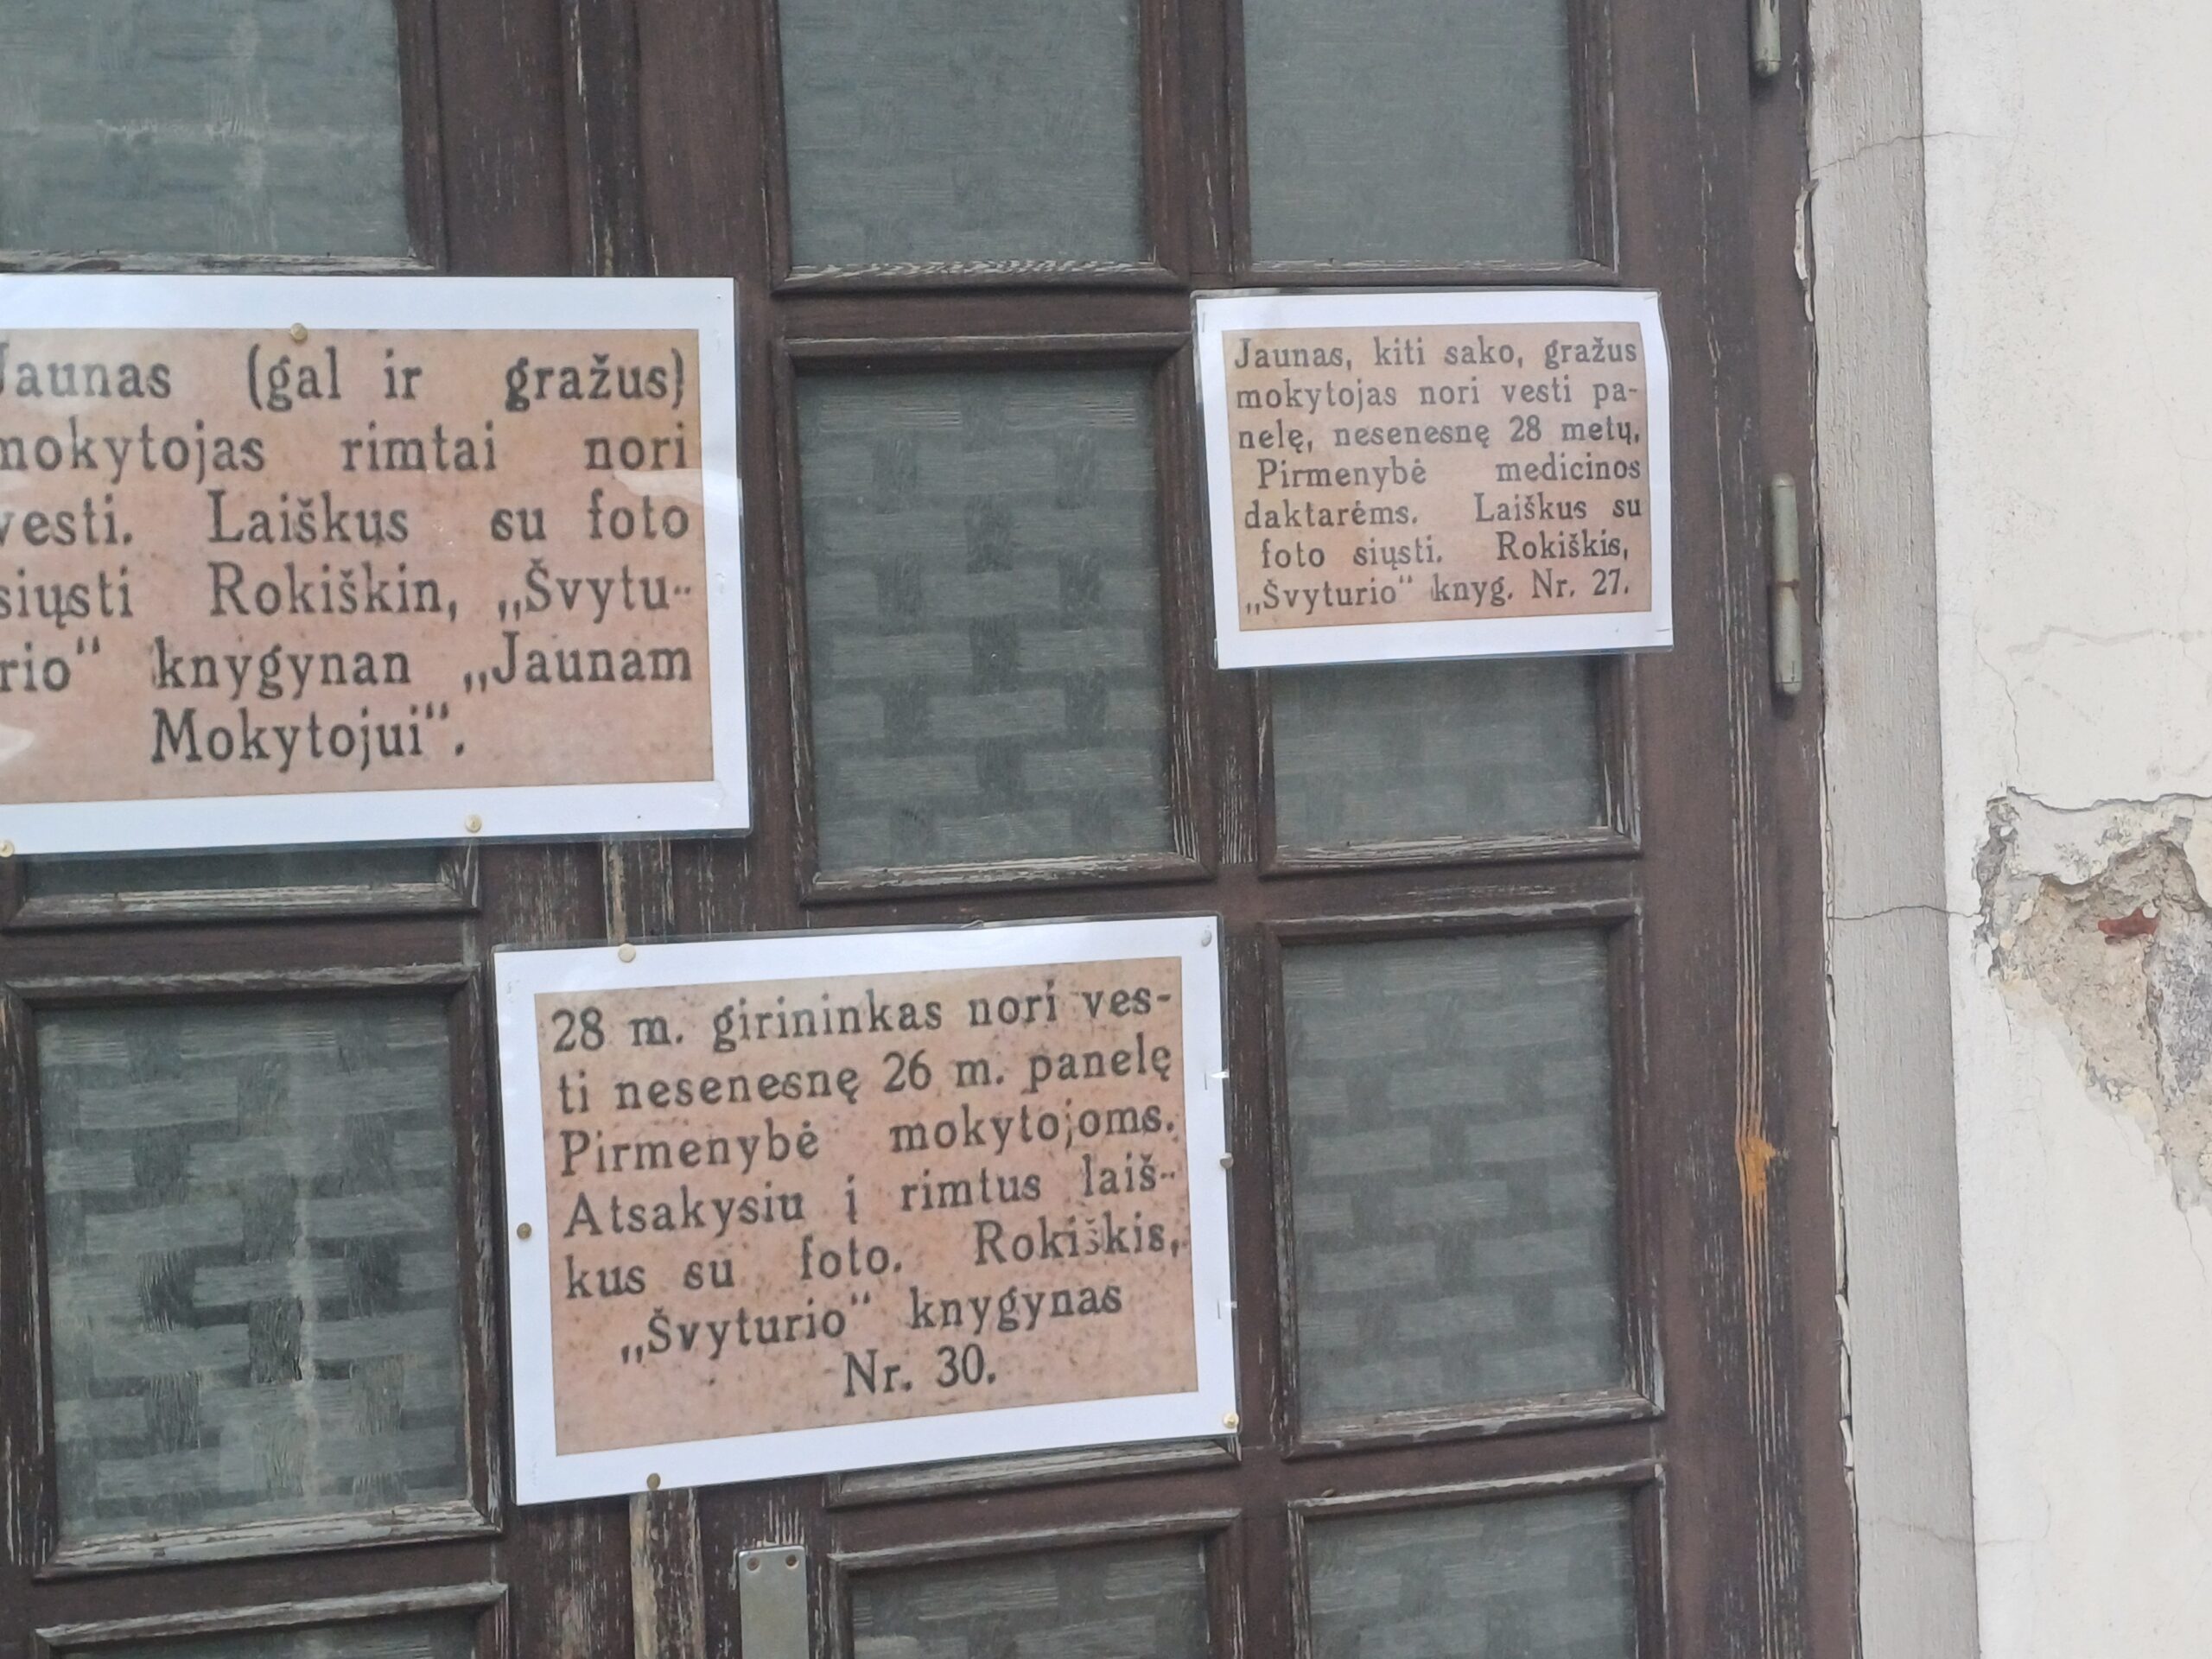 Jaunas (gal ir gražus)
mokytojas rimtai nori
vesti. Laiškus su foto
siųsti Rokiškin, „Švytu-
rio“ knygynan „Jaunam
Mokytojui“.
Jaunas, kiti sako, gražus
mokytojas nori vesti pa-
nelę, nesenesnę 28 metų,
Pirmenybė medicinos
daktarėms. Laiškus su
foto siųsti. Rokiškis,
„Švyturio“ knyg. Nr. 27.
28 m. girininkas nori ves-
ti nesenesnę 26 m. panelę
Pirmenybė mokytojoms.
Atsakysiu į rimtus laiš-
kus su foto. Rokiškis,
„Švyturio“ knygynas
Nr. 30.